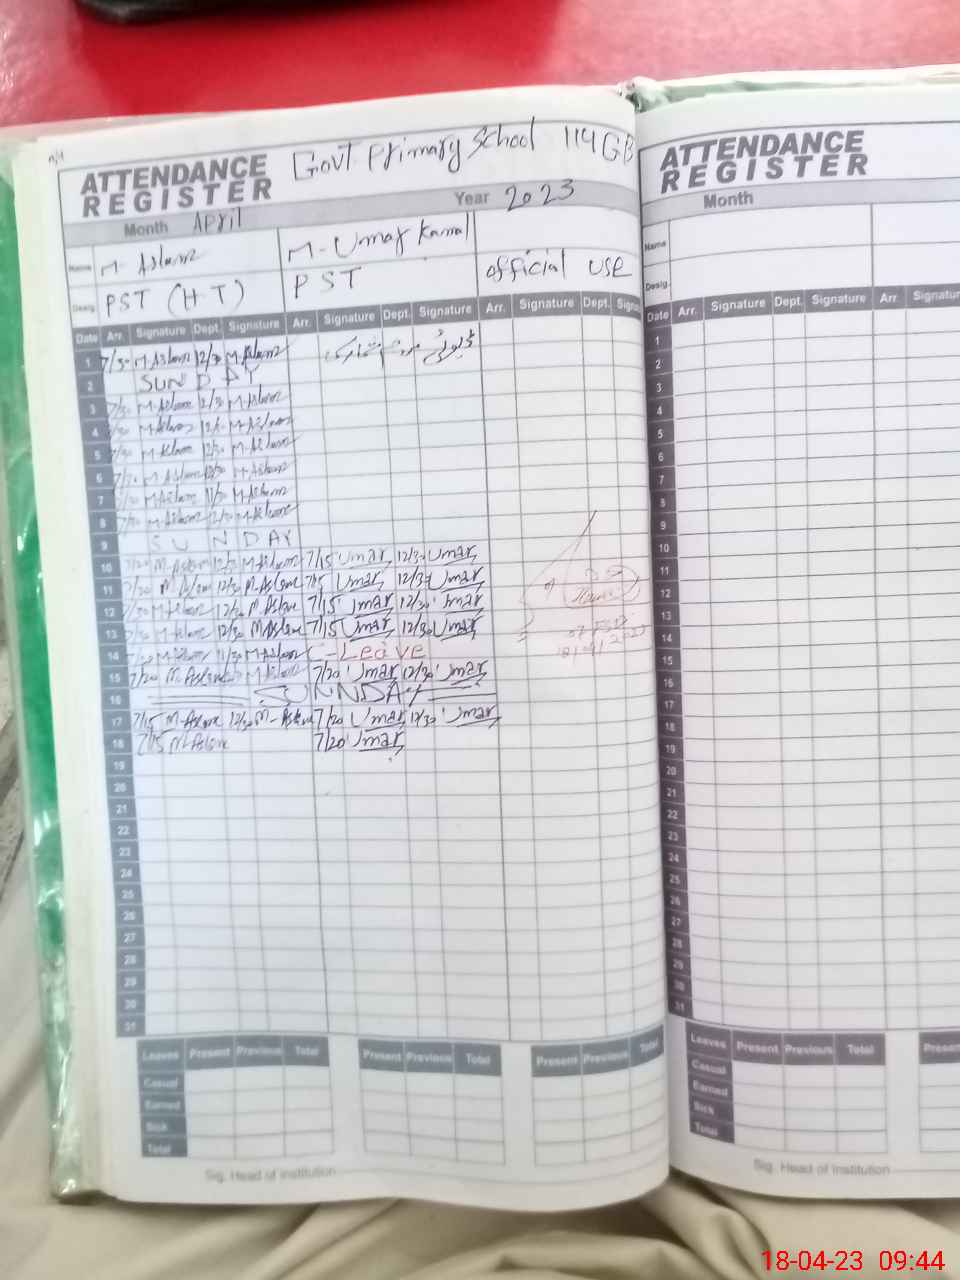 Govt Primary School 114GB
ATTENDANCE
REGISTER
Month April Year 2023
Name M. Aslam M. Umar Kamal
Desig. PST (H.T) PST official use
Date Arr. Signature Dept. Signature Arr. Signature Dept. Signature Arr. Signature Dept. Signa
1 7/30 M.Aslam 12/30 M.Aslam ڈیوٹی مردم شماری
2 SUNDAY
3 7/30 M.Aslam 12/30 M.Aslam
4 7/30 M.Aslam 12/30 M.Aslam
5 7/30 M.Aslam 12/30 M.Aslam
6 7/30 M.Aslam 12/30 M.Aslam
7 7/30 M.Aslam 11/30 M.Aslam
8 7/30 M.Aslam 12/30 M.Aslam
9 SUNDAY
10 7/20 M.Aslam 12/30 M.Aslam 7/15 Umar 12/30 Umar
11 7/20 M.Aslam 12/30 M.Aslam 7/15 Umar 12/30 Umar
12 7/30 M.Aslam 12/30 M.Aslam 7/15 Umar 12/30 Umar
13 7/30 M.Aslam 12/30 M.Aslam 7/15 Umar 12/30 Umar
14 7/20 M.Aslam 11/30 M.Aslam C-Leave
15 7/20 M.Aslam M.Aslam 7/20 Umar 12/30 Umar
16 SUNNDAY
17 7/15 M-Aslam 12/30 M-Aslam 7/20 Umar 12/30 Umar
18 7/15 M-Aslam 7/20 Umar
19
20
21
22
23
24
25
26
27
28
29
30
31
Leaves Present Previous Total Present Previous Total Present Previous Total
Casual
Earned
Sick
Total
Sig. Head of Institution
ATTENDANCE
REGISTER
Month
Name
Desig.
Date Arr. Signature Dept. Signature Arr. Signatur
1
2
3
4
5
6
7
8
9
10
11
12
13
14
15
16
17
18
19
20
21
22
23
24
25
26
27
28
29
30
31
Leaves Present Previous Total Presen
Casual
Earned
Sick
Total
Sig. Head of Institution
18-04-23 09:44